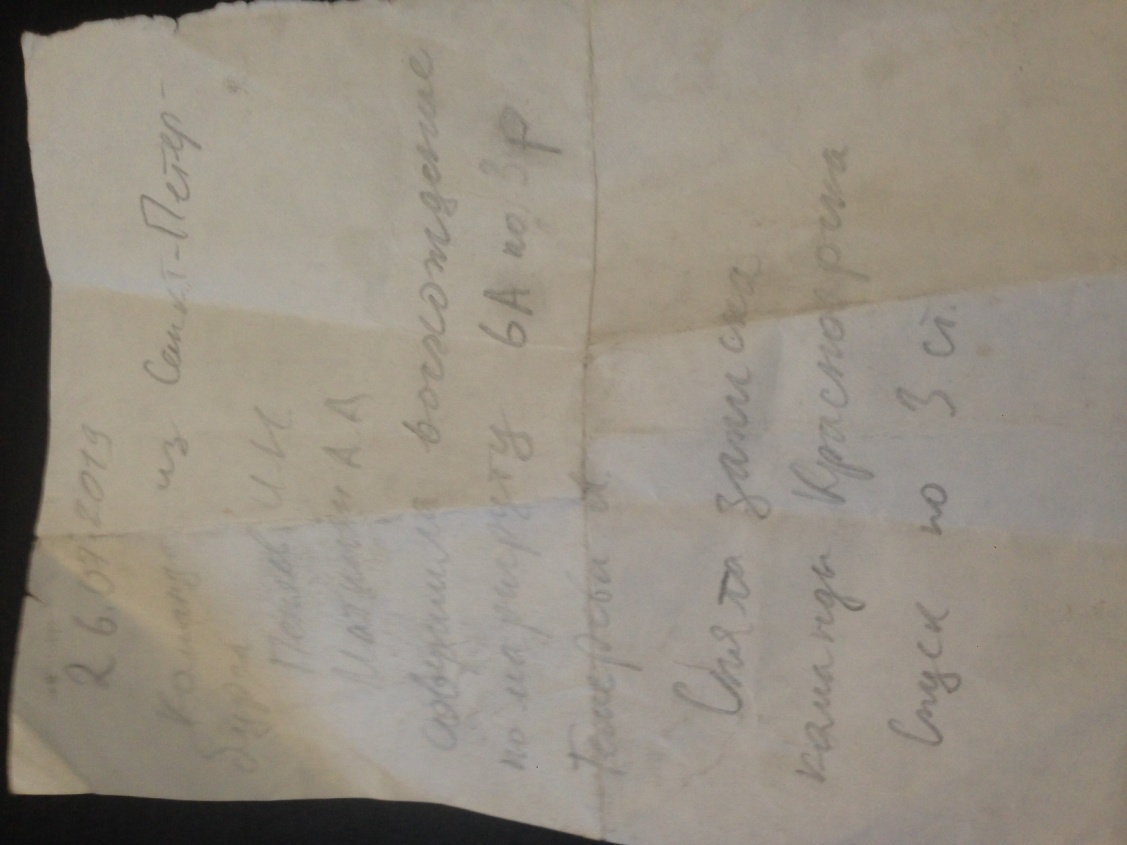 26.07.2019
Команда из Санкт-Петер-
бурга
И.Н
А А
совершила восхождение
по маршруту 6А по 3 р
Снята записка
команды Красноярска
Спуск по 3 ст.